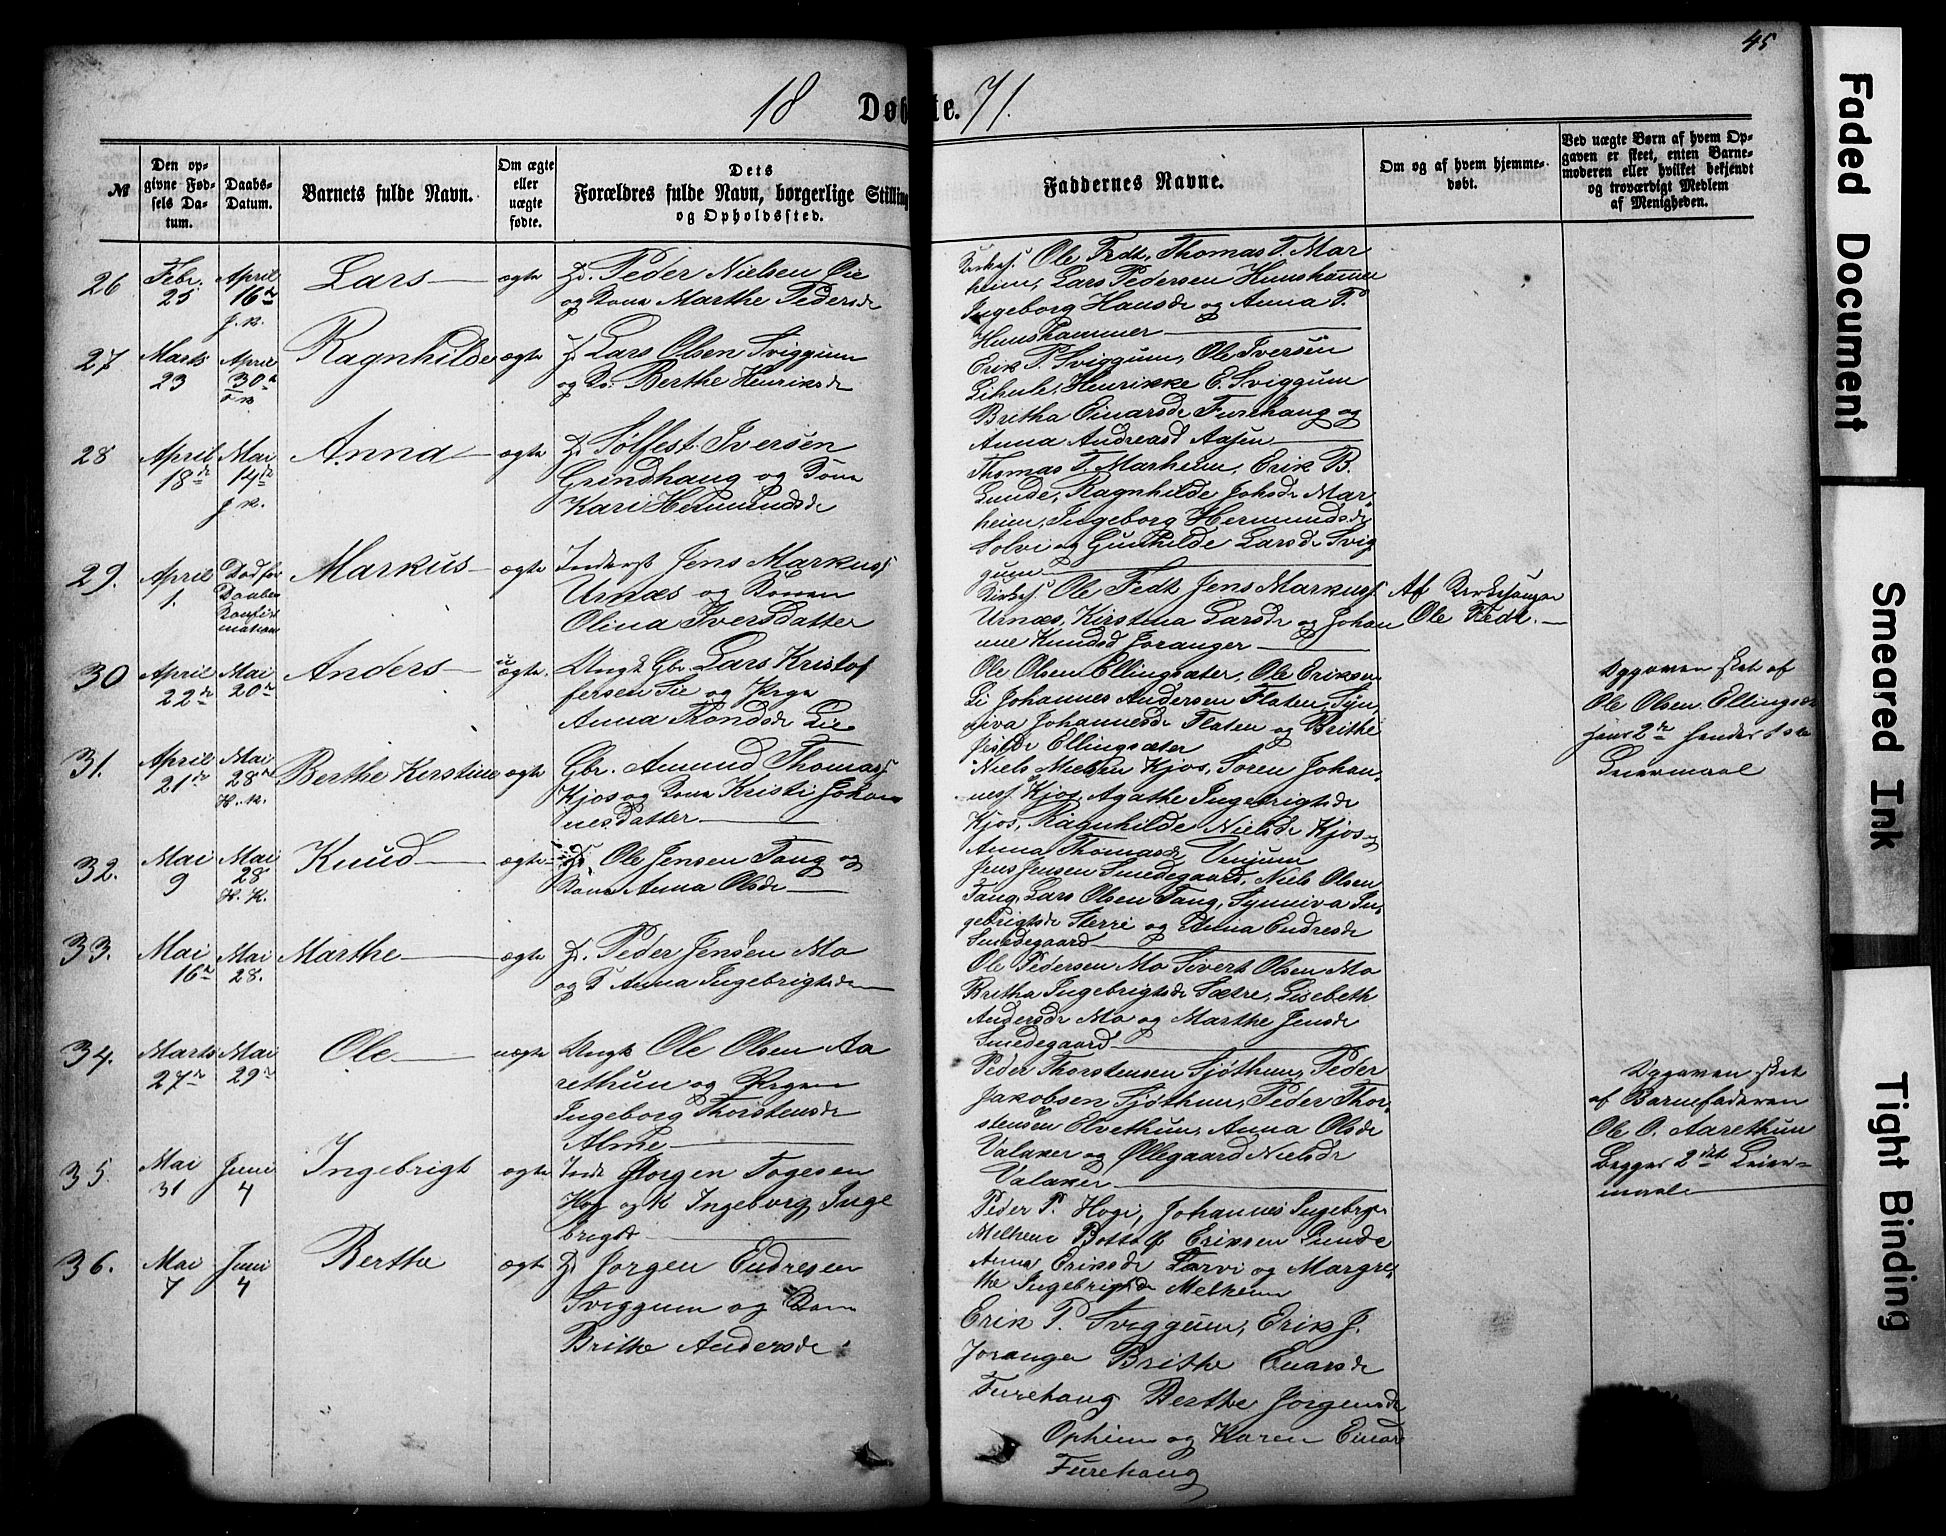 45
18 Døbte. 71.
№
Den opgivne Fødsels Datum.
Daabs-Datum.
Barnets fulde Navn.
Om ægte eller uægte fødte.
Dets Forældres fulde Navn, borgerlige Stilling og Opholdssted.
Faddernes Navne.
Om og af hvem hjemmedøbt.
Ved uægte Børn af hvem Opgaven er skeet, enten Barnemoderen eller hvilket bekjendt og troværdigt Medlem af Menigheden.
26 Febr. 25 April 16 Lars ægte
Peder Nielsen
og Kona Marthe Pedersdr
Kirkes. Ole Fedt, Thomas T. Mar
heim, Lars Pedersen Hunshammer
Ingeborg Hansdr og Anna P.
Hunshammer
27 Marts 23 April 30 Ragnhilde ægte
Lars Olsen Sviggum
og K. Berthe Henriksdr
Erik P. Sviggum, Ole Iversen
Lihule, Henrikke E. Sviggum
Britha Einarsdr Furehaug og
Anna Andreasd Aasen
28 April 18de Mai 14de Anna ægte
Sølfest Iversen
Grindshaug og Kona
Kari Hermundsdr
Thomas T. Marheim, Erik B.
Lunde, Ragnhilde Johsdr Mar-
heim, Ingeborg Hermundsdr
Solvi og Gunhilde Larsdr Svig
gum
29. April 1. Død før Daabens Konfirmation Markus ægte
Inderst Jens Markuss
Urnæs og Konen
Olina Iversdatter
Kirkes. Ole Fedt, Jens Markuss
Urnæs, Kirstina Larsdr og Johan
ne Knudsd Joranger
Af Kirkesanger
Ole Fedt.
30 April 22de Mai 20de Anders uægte
Ungk Gbr. Lars Kristof
fersen Lie og Pige
Anna Trondsdr Lie
Ole Olsen Ellingsæter, Ole Eriksen
Li Johannes Andersen Flaten, Syn
niva Johannesdr Flaten og Brithe
Ellingsæter
Opgaven skeet af
Ole Olsen Ellings
hans 2de hendes 1ste
Leiermaal
31. April 21de Mai 28de H. K. Berthe Kirstine ægte
Gbr. Amund Thomass
Kjos og Kona Kristi Johan
nesdatter
Niels Nielsen Kjos, Søren Johan-
ness Kjos, Agathe Ingebrigtsdr
Kjos, Ragnhilde Nielsdr Kjos og
Anna Thomasdr Venjum
32. Mai 9 Mai 28 H. K. Knud ægte
Ole Jensen Tang og
Kona Anna Olsdr
Jens Jensen Smedegaard, Niels Olsen
Tang, Lars Olsen Tang, Synneva In-
gebrigtsdr Sterri og Anna Endresdr
Smedegaard
33. Mai 16de Mai 28. Marthe ægte
Peder Jensen Mo
og K Anna Ingebrigtsdr
Ole Pedersen Mo Sivert Olsen Mo
Britha Ingebrigtsdr Sætre, Lisebeth
Andersdr Mo og Marthe Jensdr
Smedegaard
34. Marts 27de Mai 29de Ole uægte
Ungk Ole Olsen Aa
rethun og Pigen
Ingeborg Thorstensdr
Alme
Peder Thorstensen Sjøthun, Peder
Jakobsen Sjøthun, Peder Thor-
stensen Elvethun, Anna Olsdr
Valaker og Øllegaard Nielsdr
Valaker
Opgaven skeet
af Barnefaderen
Ole O. Aarethun
Begges 2det Leier-
maal
35. Mai 31 Juni 4 Ingebrigt ægte
Ind Jørgen Togesen
Hog og K Ingeborg Inge
brigtsd
Peder P. Hogi, Johannes Ingebrgs
Melheim Bottolf Eriksen Lunde
Anna Eriksdr Tarvi og Margre-
the Ingebrigtsdr Melheim
36. Mai 7 Juni 4 Berthe ægte
Jorgen Endresen
Sviggum og Kona
Brithe Andersdr
Erik P. Sviggum, Erik J.
Joranger Brithe Einarsdr
Furehaug Berthe Jørgensdr
Opheim og Karen Einars
Furehaug
Faded Document
Smeared Ink
Tight Binding